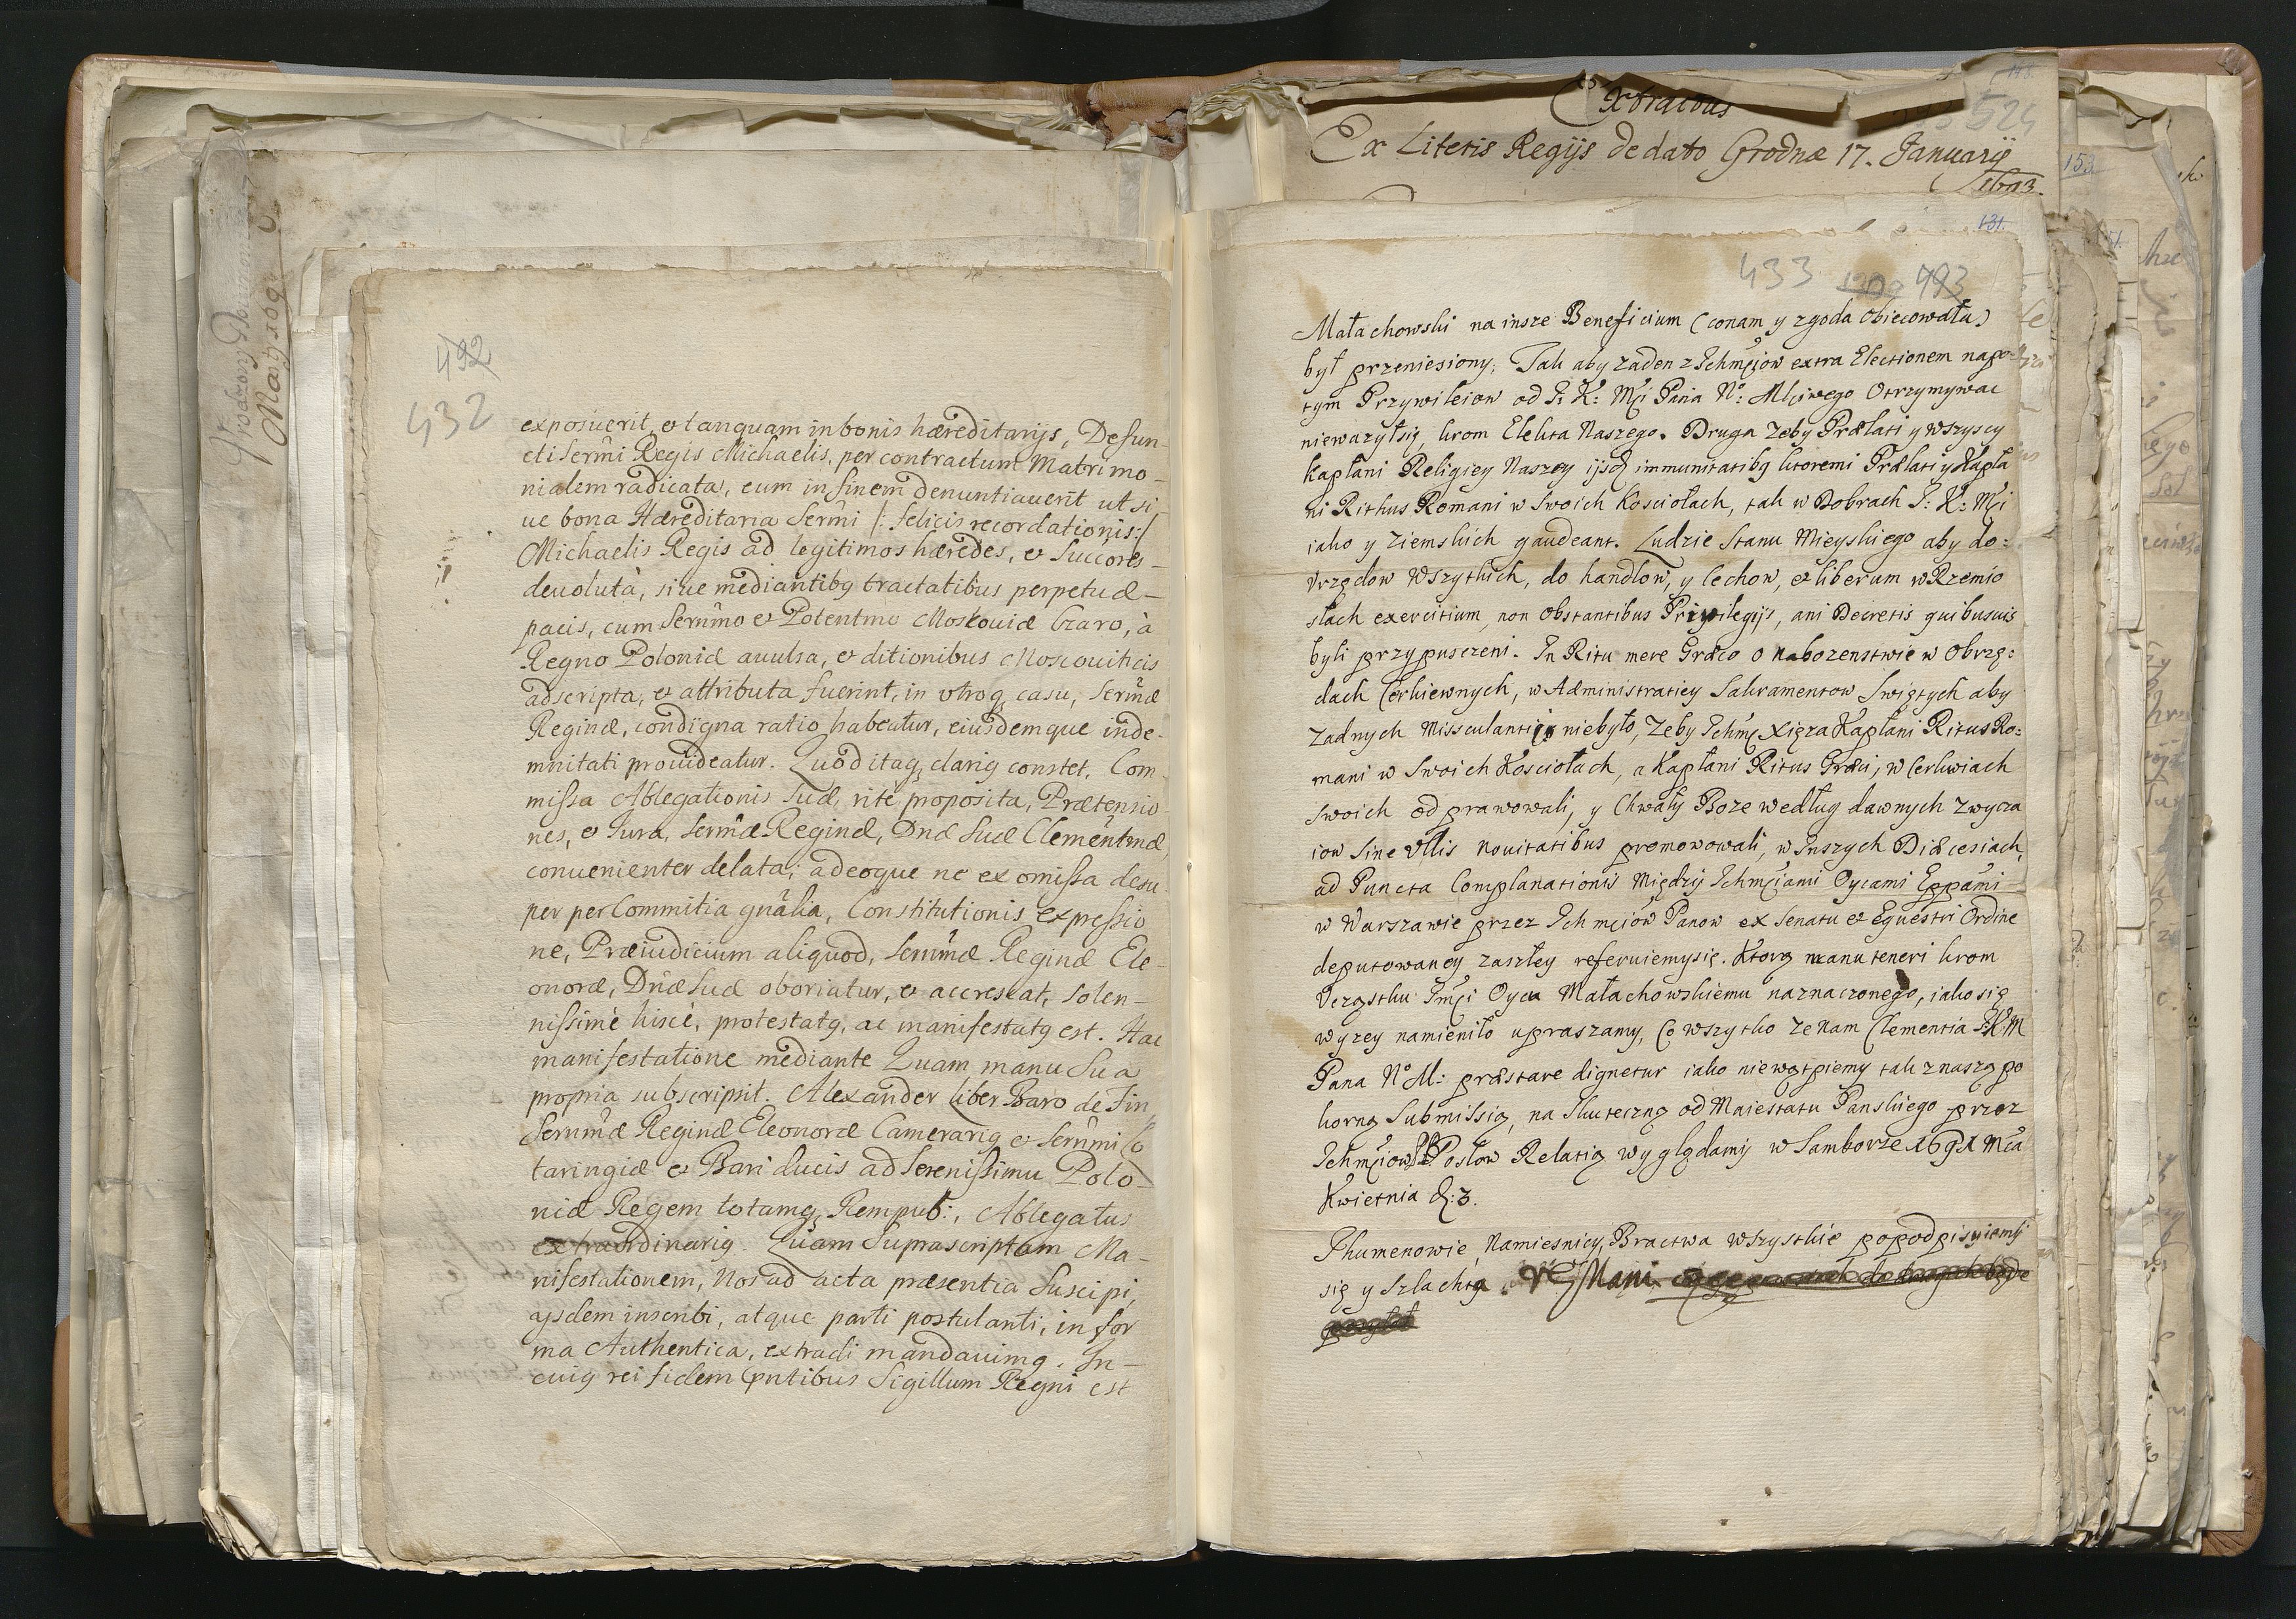 492
432
exposuerit, et tanquam in bonis hæreditarijs, Defun-
cti Serm̃i Regis Michaelis, per contractum Matrimo-
nialem radicata, eum in finem denuntiauerit ut si-
ue bona Hæreditaria Serm̃i /: felicis recordationis:/
Michaelis Regis ad legitimos hæredes, et Succõres-
deuoluta, siue mediantibq tractatibus perpetuæ-
pacis, cum Serm̃mo et Potentmo Moskouiæ Czaro, à
Regno Poloniæ auulsa, et ditionibus Moscouiticis
adscripta, et attributa fuerint, in vtroq casu, Serm̃æ
Reginæ, condigna ratio habeatur, eiusdemque inde-
mnitati prouideatur. Quod itaq clariq constet, Com-
missa Ablegationis suæ, rite proposita, Prætensio-
nes, et Jura, Serm̃æ Reginæ, Dnæ suæ Clementmæ,
conuenienter delata; adeoque ne ex omissa desu-
per per Commitia gnãlia, Constitutionis expressio
ne, Præiudicium aliquod, Serm̃mæ Reginæ Ele-
onoræ, Dñæ suæ oboriatur, et accrescat, solen-
nissime hisce, protestatq, ac manifestatq est. Hac
manifestatione mediante Quam manu sua
propria subscripsit. Alexander Liber Baro de Fin,
Serm̃mæ Reginæ Eleonoræ Camerariq et Serm̃mi Lo
taringiæ et Bari ducis ad Serenissimũ Polo-
niæ Regem totamq Rempub:, Ablegatus
extraordinariq. Quam Suprascriptam Ma-
nifestationem, Nos ad acta præsentia suscipi,
ijsdem inscribi, atque parti postulanti, in for
ma Authentica, extradi mandauimq. In-
cuiq rei fidem pñtibus Sigillum Regni est
Extractus
Ex Literis Regijs de dato Grodnæ 17. Januarij
1693.
524
153
131.
433 493
Małachowski na insze Beneficium (co nam y zgoda obiecowała)
był przeniesiony; Tak aby zaden z Ichmciow extra Electionem napo-
tym Przywileiow od J: K: Mci Pana N°: Mciwego Otrzymywac
niewazył się, krom Elekta Naszego. Druga Zeby Prælati y Wszyscy
Kapłani Religiey Naszey ijsd immunitatibq ktoremi Prælati y Kapła
ni Rithus Romani w Swoich Kosciołach, tak w Dobrach J: K: Mci
iako y Ziemskich gaudeant. Ludzie Stanu Mieyskiego aby do:
Vrzędow Wszytkich, do handlow, y Cechow, et liberum w Rzemio
słach exercitium, non obstantibus Priwilegijs, ani Decretis quibusuis
byli przypusczeni. In Ritu mere Græco o nabozenstwie w Obrzę:
dach Cerkiewnych, w Administratiey Sakramentow Swiętych aby
Zadnych niebyło, Zeby Ichmc Xięza Kapłani Ritus Ro:
mani w Swoich Kosciołach, a Kapłani Ritus Græci, w Cerkwiach
swoich odprawowali, y Chwały Boze według dawnych Zwycza
iow Sine Vllis nouitatibus promowowali, w Inszych Diæcesiach,
ad Puncta Complanationis Między Ichmciami Oycami Eppami
w Warszawie przez Ichmciow Panow ex Senatu et Equestri Ordine
deputowaney zaszłey referuiemy się. Ktorą manuteneri krom
Vczastku Jmci Oycu Małachowskiemu naznaczonego, iako się
wyzey namieniło upraszamy, Co wszytko Ze Nam Clementia J.K.M
Pana N° M: præstare dignetur iako niewątpiemy tak z naszą po
korną Submissią, na Skuteczną od Maiestatu Panskiego przez
Ichmciow PP. Posłow Relatią wyglądamy w Samborze 1691 Mca
Kwietnia d: 3.
Jhumenowie, Namiesnicy, Bractwa wszystkie popodpisuiemy
się y Szlachta